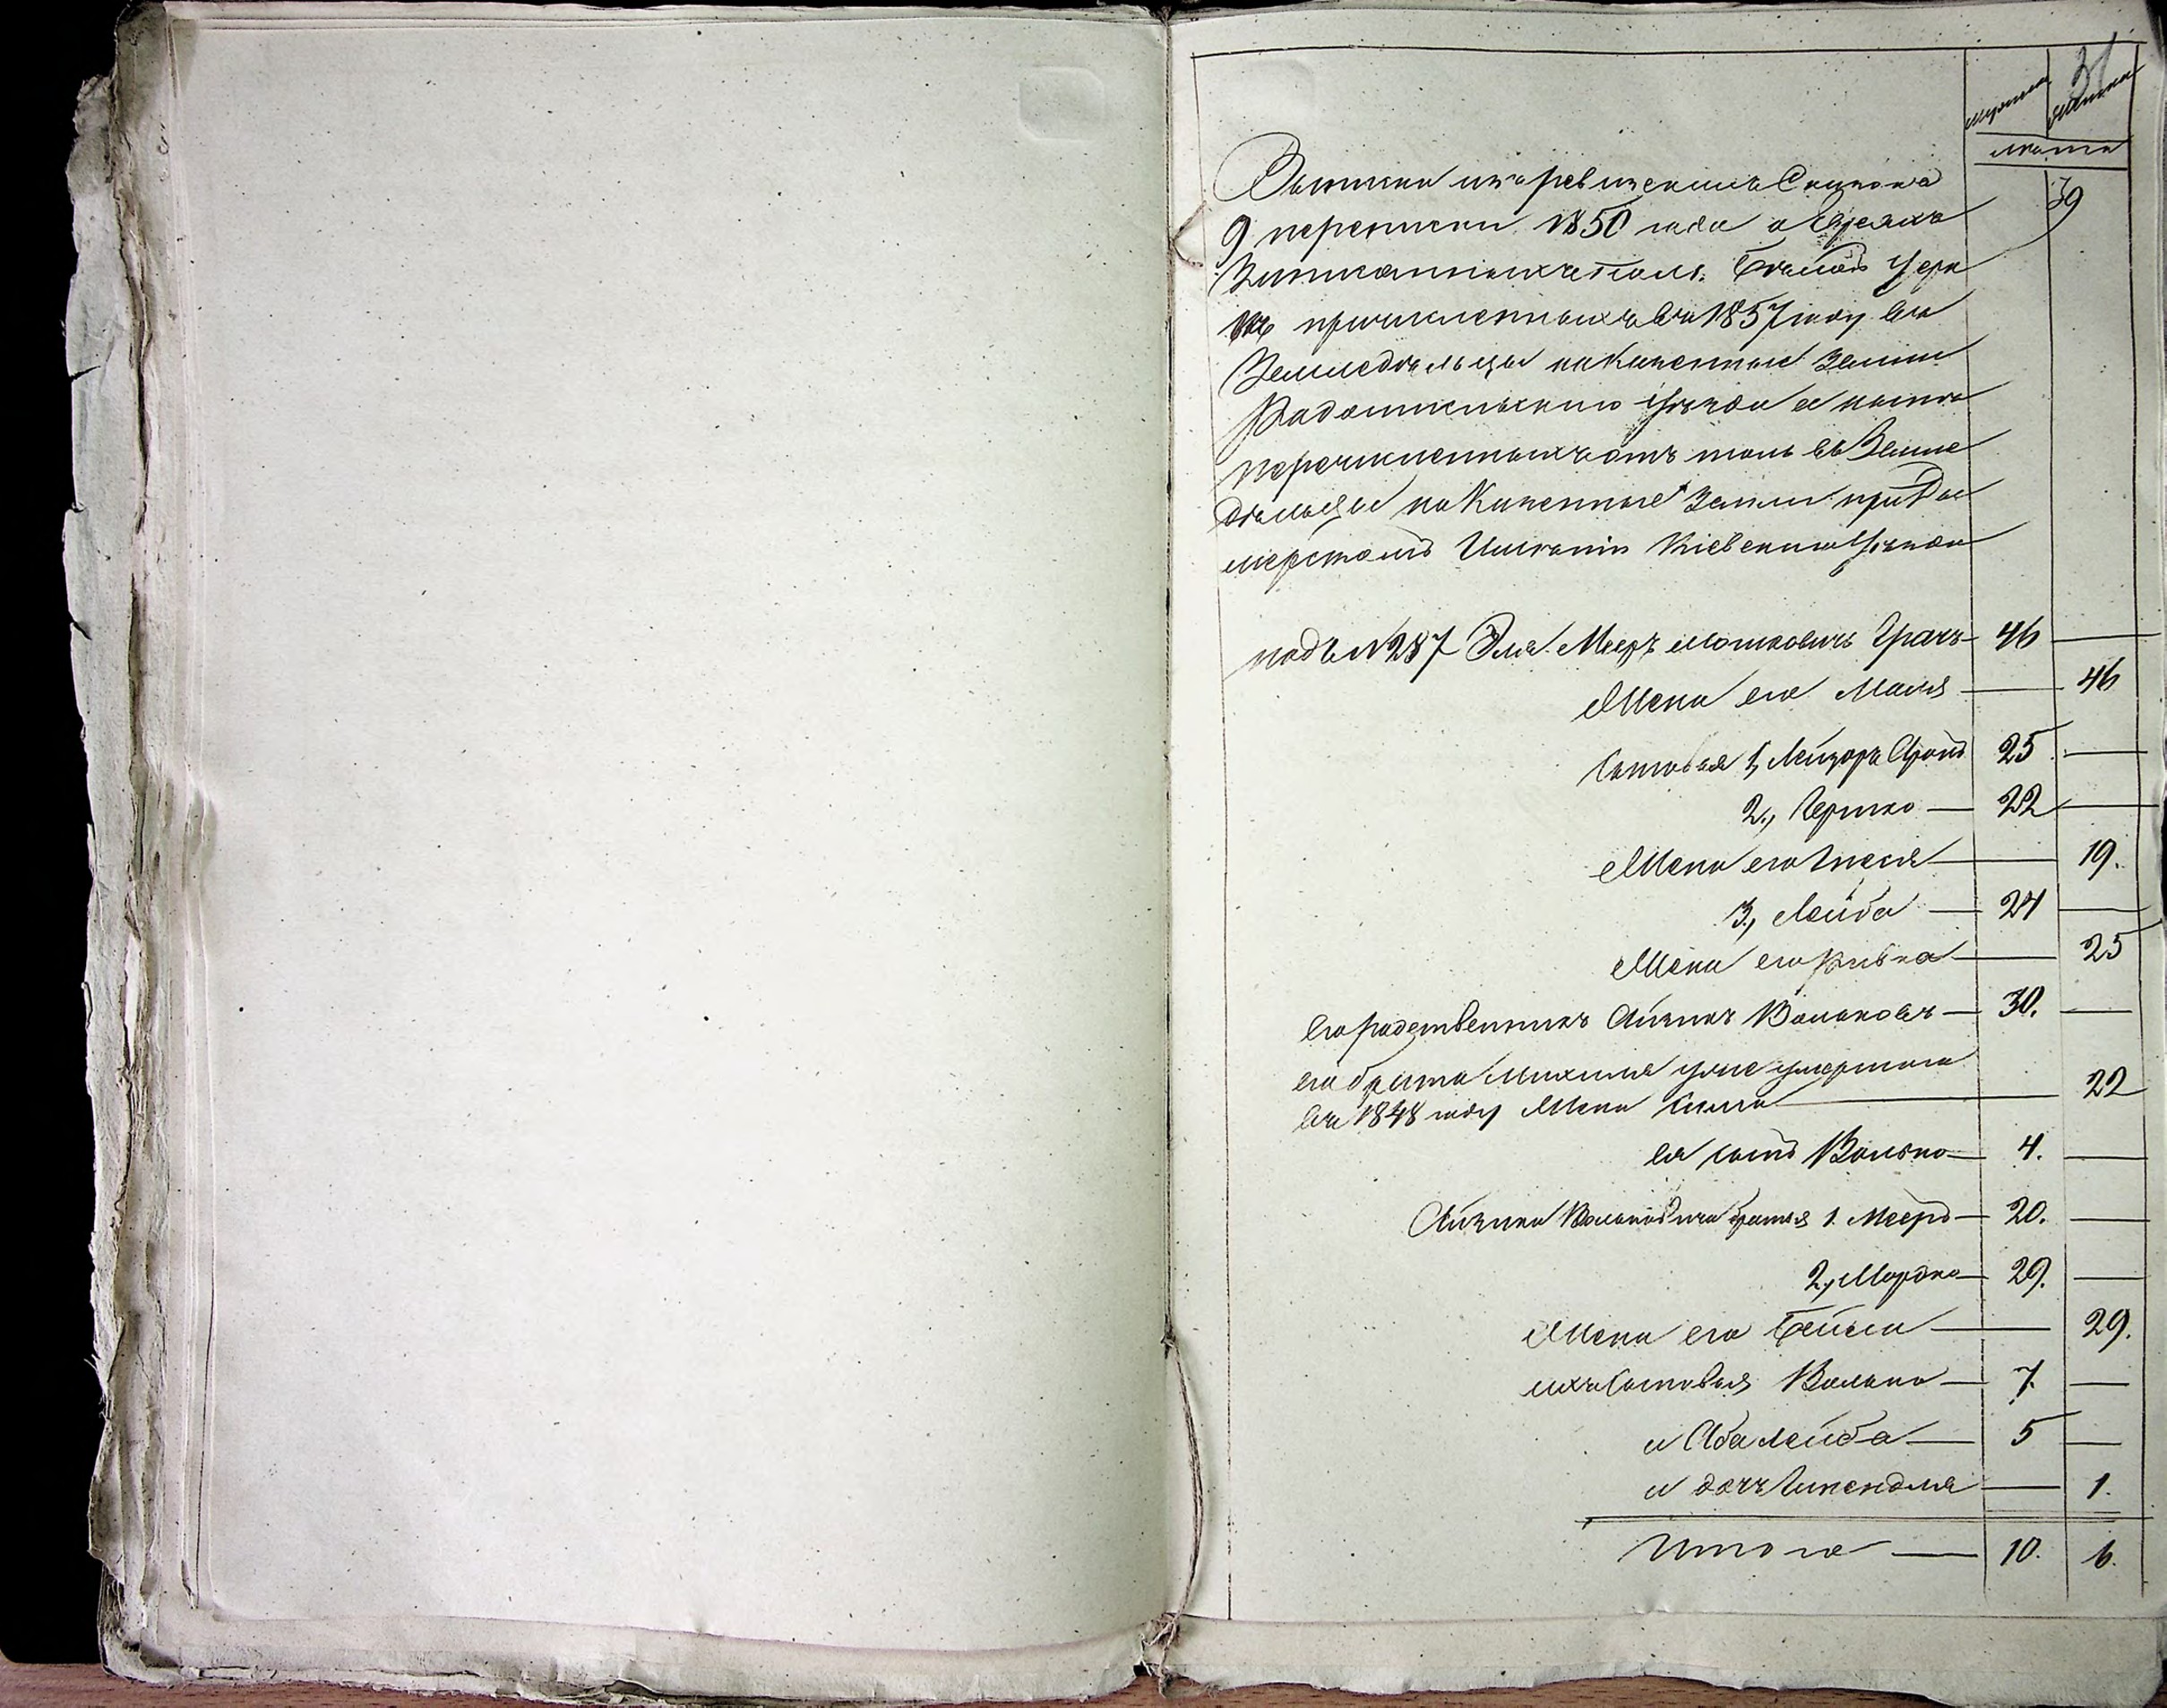 31
мужеска женска
лѣта
39
Выписка изъ ревизскихъ Списковъ
9 переписи 1850 года о Евреяхъ
Записанныхъ по Бѣлой Церк
ви причисленныхъ въ 1857 году въ
Земледѣльцы на Казенные Земли
Радомысльскаго уѣзда и нынѣ
перечисленныхъ отъ толь въ Земле
дѣльцы на Казенные Земли при
Имѣніи Кіевскаго Уѣзда
подъ №287 Эля Мееръ Мошковичъ Грачъ — 46 —
Жена его Маля — 46
Сыновья 1, Лейзоръ Аронъ 25 —
2, Гершко — 22 —
Жена его — 19.
3, Лейба — 24 —
Жена его Ривка — 25
Его родственникъ Айзикъ Вольковъ — 30. —
его брата Михеля уже умершаго
въ 1848 году Жена — 22
ея сынъ Волько — 4. —
Айзика Вольковича братья 1. Мееръ — 20. —
2, Мордко — 29. —
Жена его Бейла — 29.
ихъ Сыновья Волько — 7. —
и Аба Лейба — 5 —
и дочь — 1.
Итого — 10. 6.